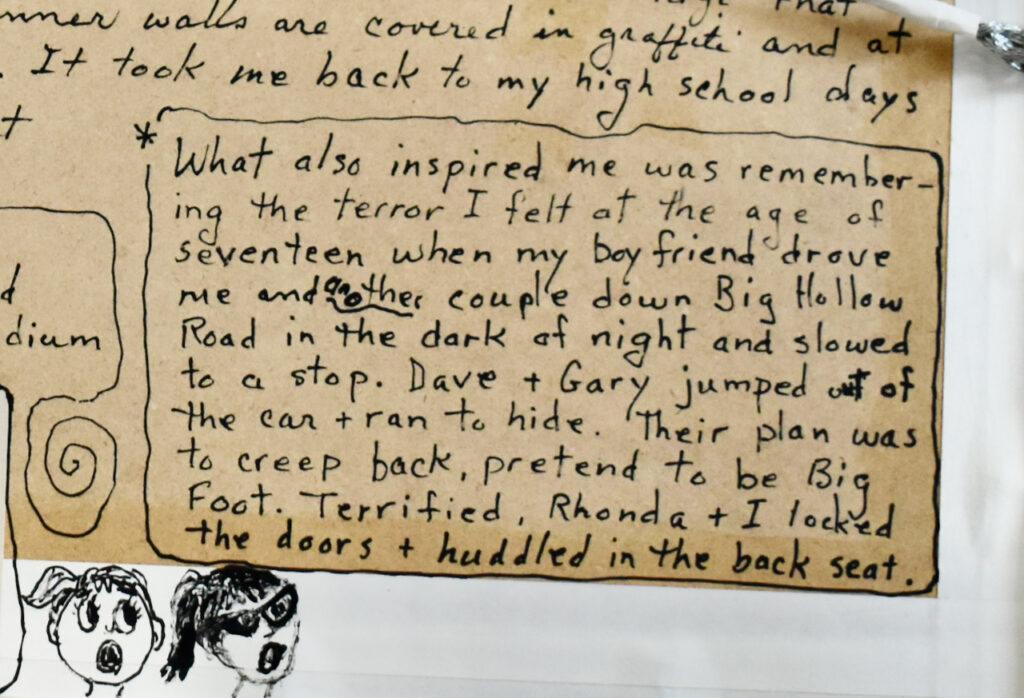 that
nner walls are covered in graffiti and at
. It took me back to my high school days
t
* What also inspired me was remember-
ing the terror I felt at the age of
seventeen when my boyfriend drove
me and another couple down Big Hollow
Road in the dark of night and slowed
to a stop. Dave + Gary jumped out of
the car + ran to hide. Their plan was
to creep back, pretend to be Big
Foot. Terrified, Rhonda + I locked
the doors + huddled in the back seat.
d
dium